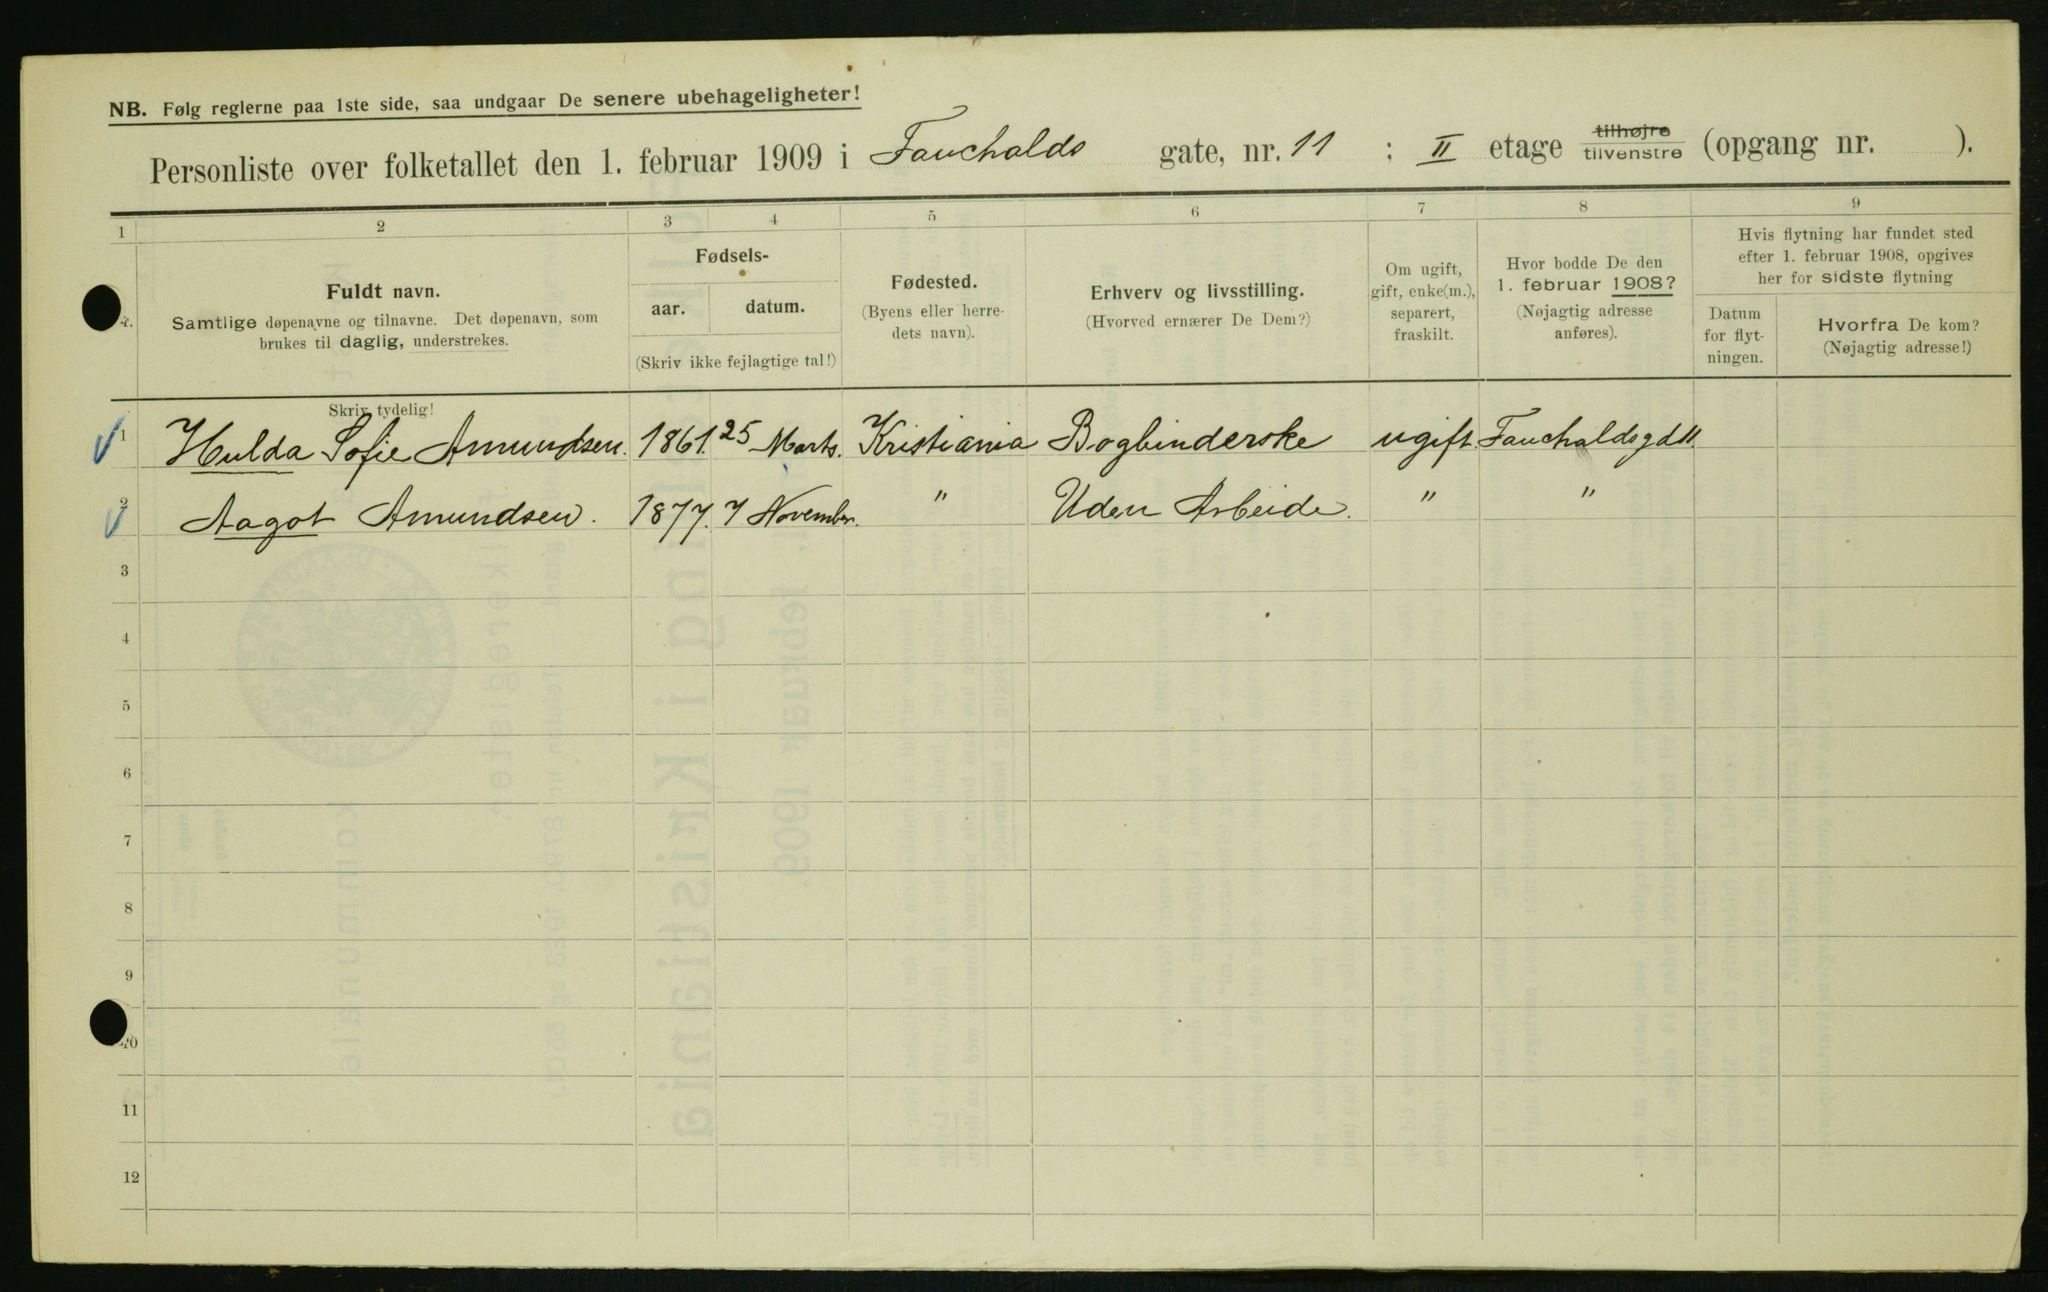 NB. Følg reglerne paa 1ste side, saa undgaar De senere ubehageligheter!
Personliste over folketallet den 1. februar 1909 i Fauchalds gate, nr. 11 ; II etage tilhøjre tilvenstre (opgang nr. ).
1 2 3 4 5 6 7 8 9
Fuldt navn.
Samtlige døpenavne og tilnavne. Det døpenavn, som
brukes til daglig, understrekes.
Skriv tydelig!
Fødsels-
aar. datum.
(Skriv ikke fejlagtige tal!)
Fødested.
(Byens eller herre-
dets navn).
Erhverv og livsstilling.
(Hvorved ernærer De Dem?)
Om ugift,
gift, enke(m.),
separert,
fraskilt.
Hvor bodde De den
1. februar 1908?
(Nøjagtig adresse
anføres).
Hvis flytning har fundet sted
efter 1. februar 1908, opgives
her for sidste flytning
Datum
for flyt-
ningen.
Hvorfra De kom?
(Nøjagtig adresse!)
1 Hulda Sofie Amundsen. 1861. 25 Marts. Kristiania Bogbinderske ugift. Fauchaldsgd 11.
2 Aagot Amundsen. 1877. 7 November. " Uden Arbeide. " "
3
4
5
6
7
8
9
10
11
12